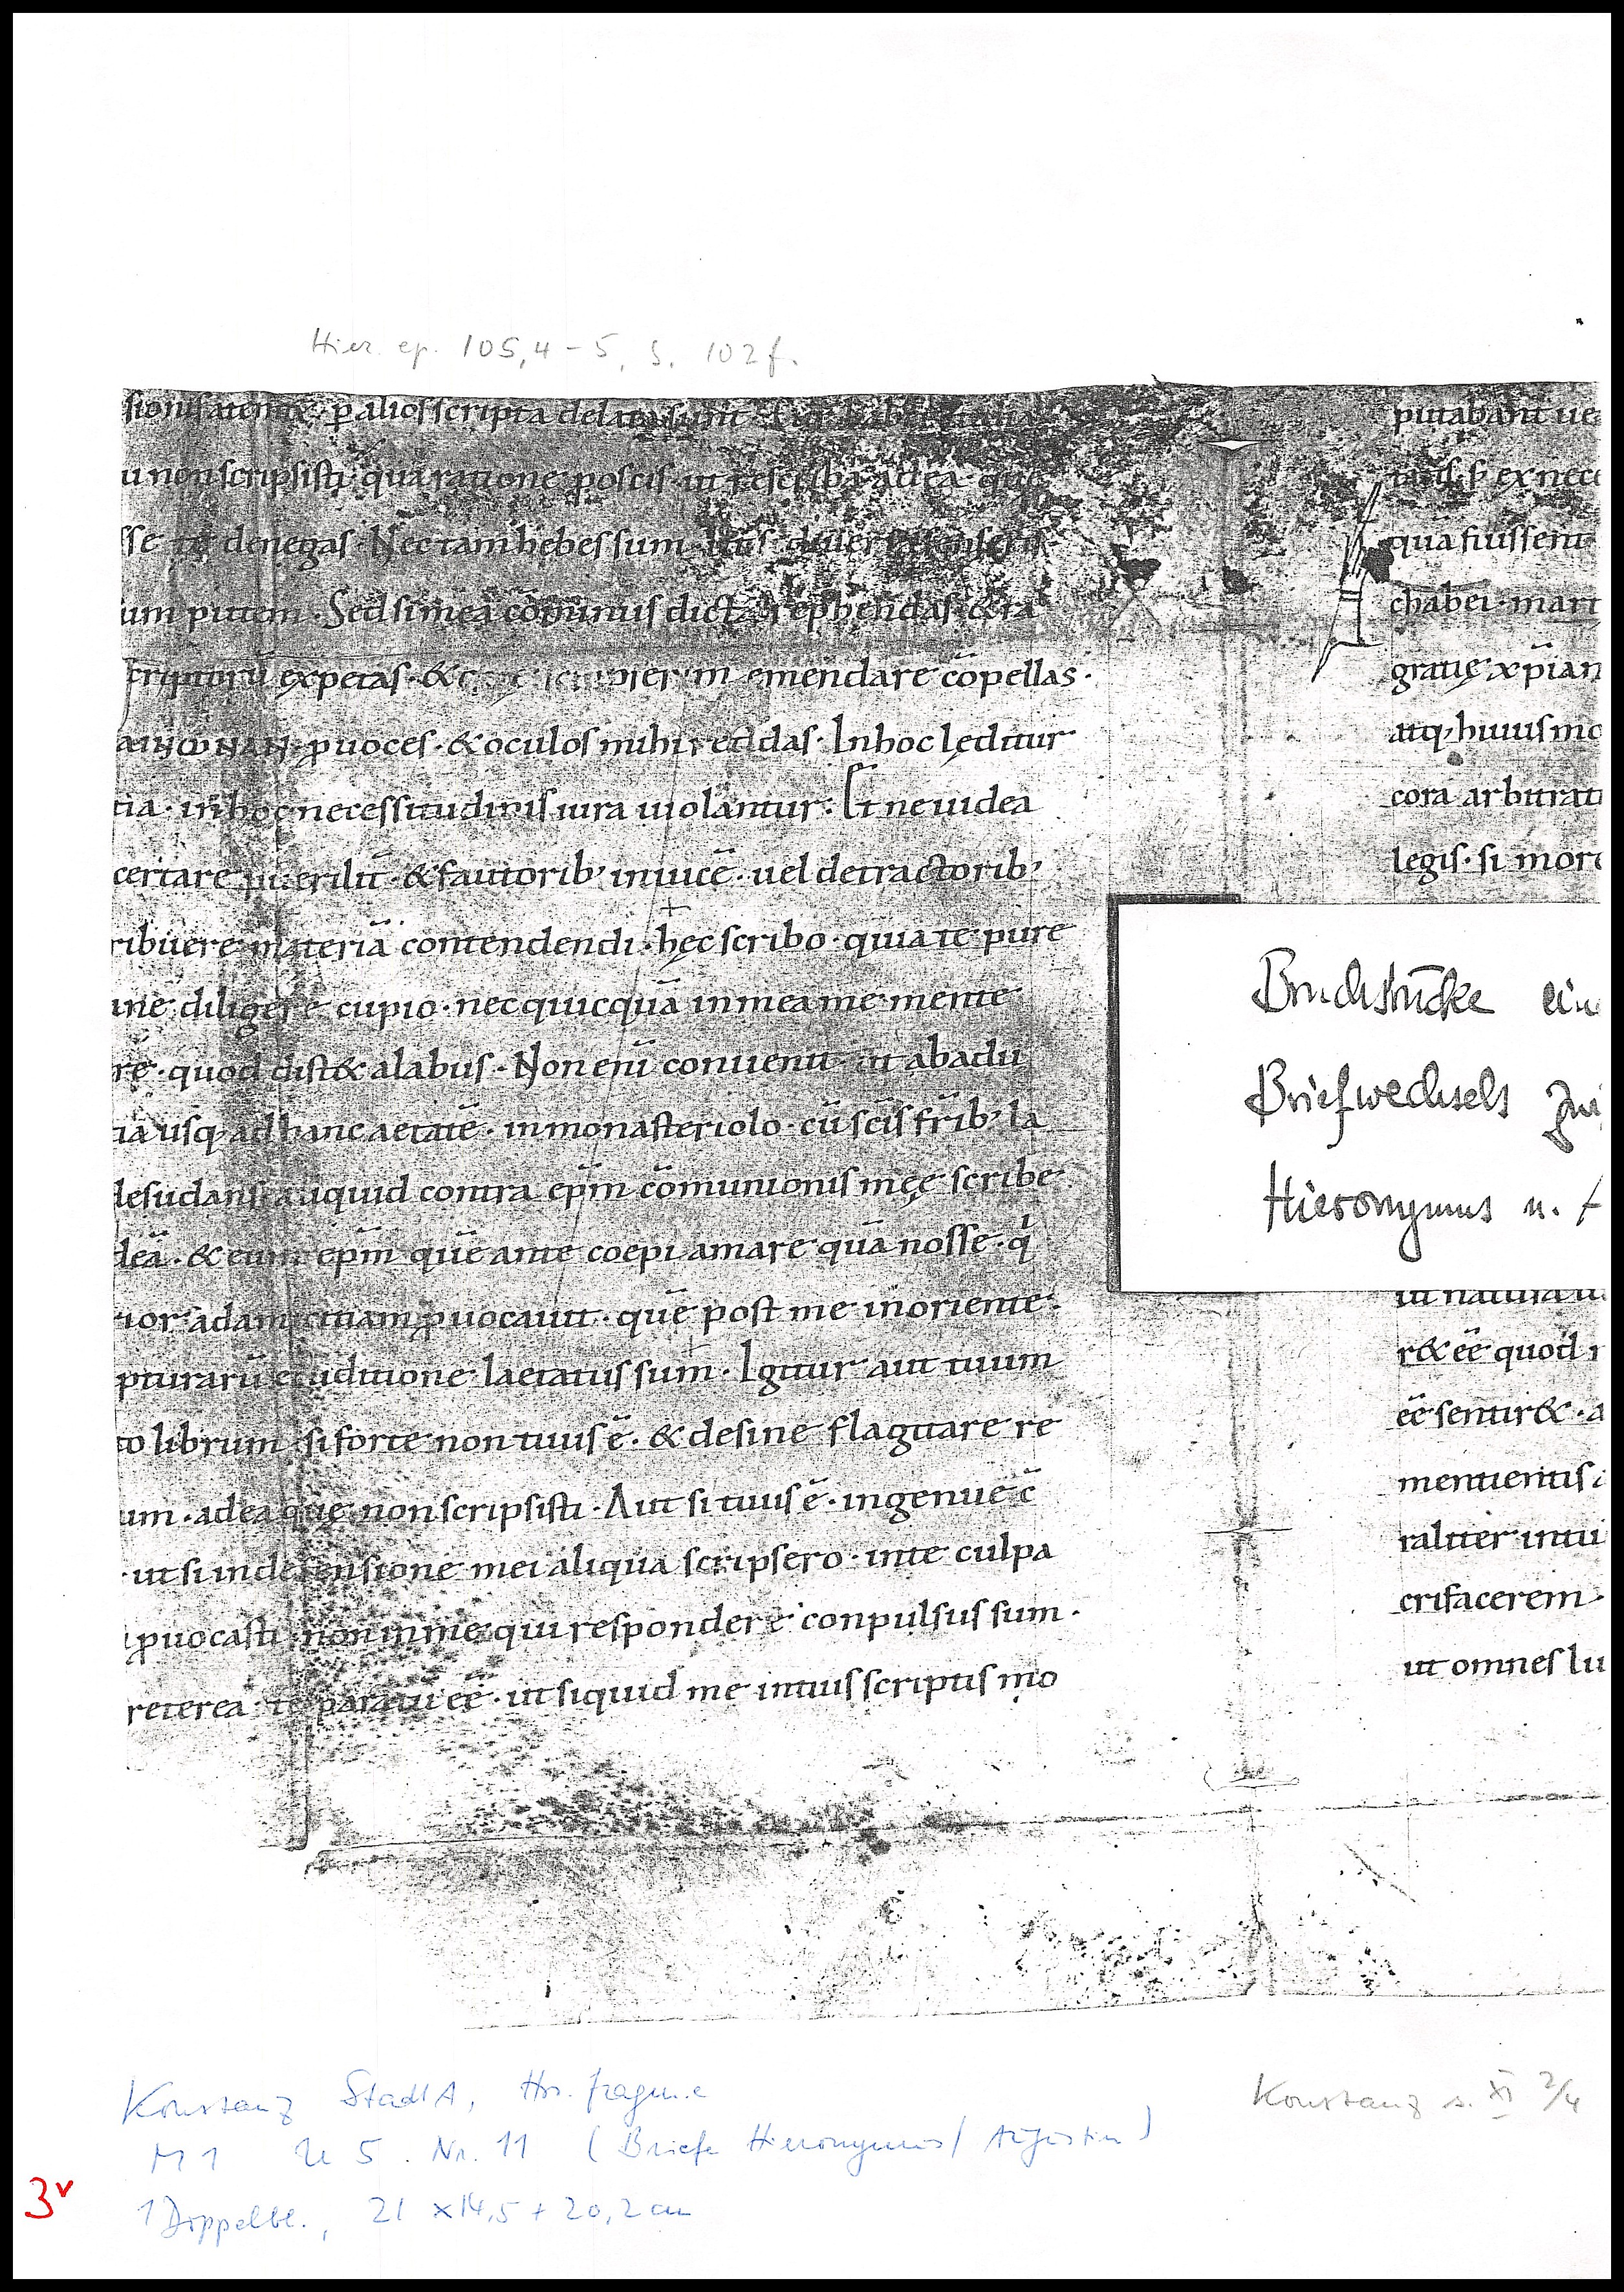 Hier. ep. 105,4-5, S. 102f.
sionis atem̅tę. ꝑ alios scripta delata sunt
u non scripsisti· qua ratione poscis· ut rescriba̅ ad ea· quę
sse te denegas· Nec tam hebes sum· ut si diuersa senseris·
um putem· Sed si mea cominus dicta rep̅hendas· & ra
scriptoru̅ expetas· & emendare co̅pellas·
ꝓuoces· & oculos mihi reddas· In hoc lęditur
tia· in hoc necessitudinis iura uiolantur· Et ne uidea
certare pueriliт̅· & fautorib; inuice̅· uel detractorib;
ribuere materia̅ contendendi· hęc scribo· quia te pure
ane diligere cupio· nec quicqua̅ in mea me mente
re· quod dist& a labiis· Non eni̅ conuenit· ut ab adu
tia usq; ad hanc aetate̅· in monasteriolo· cu̅ sc̅is fr̅ib; la
desudans· aliquid contra ep̅m co̅munionis męę scribe
dea̅· & eum ep̅m que̅ ante coepi amare qua̅ nosse· q̇
rior ad amicitiam ꝓuocauit· que̅ post me oriente̅·
pturaru̅ eruditione laetatus sum· Igitur aut tuum
to librum· si forte non tuus e̅· & desine flagitare re
um· ad ea quę non scripsisti· Aut si tuus e̅· ingenue c̅
· ut si in defensione mei aliqua scripsero· in te culpa
ꝓuocasti· non in me· qui respondere conpulsus sum·
reterea· te paratu̅ ee̅· ut siquid me in tuis scriptis mo
putabant ue
tuis· s; ex nece
qua̅ fuissent
chabei· mart
gratię xp̅ian
atq; huiusmo
cora arbitrati
legis· si more
Bruchstücke ein
Briefwechsels zwi
Hieronymus u. A
ut natura
r& ee̅ quod n
ee̅ sentir&· a
mentientis a
raliter intui
crifacerem·
ut omnes lu
Konstanz StadtA, Hs. fragme
M 1 U 5. Nr. 11 (Briefe Hieronymus/Augustin)
1 Doppelbl., 21 x 14,5 + 20,2 cm
Konstanz s. XI 2/4
3v